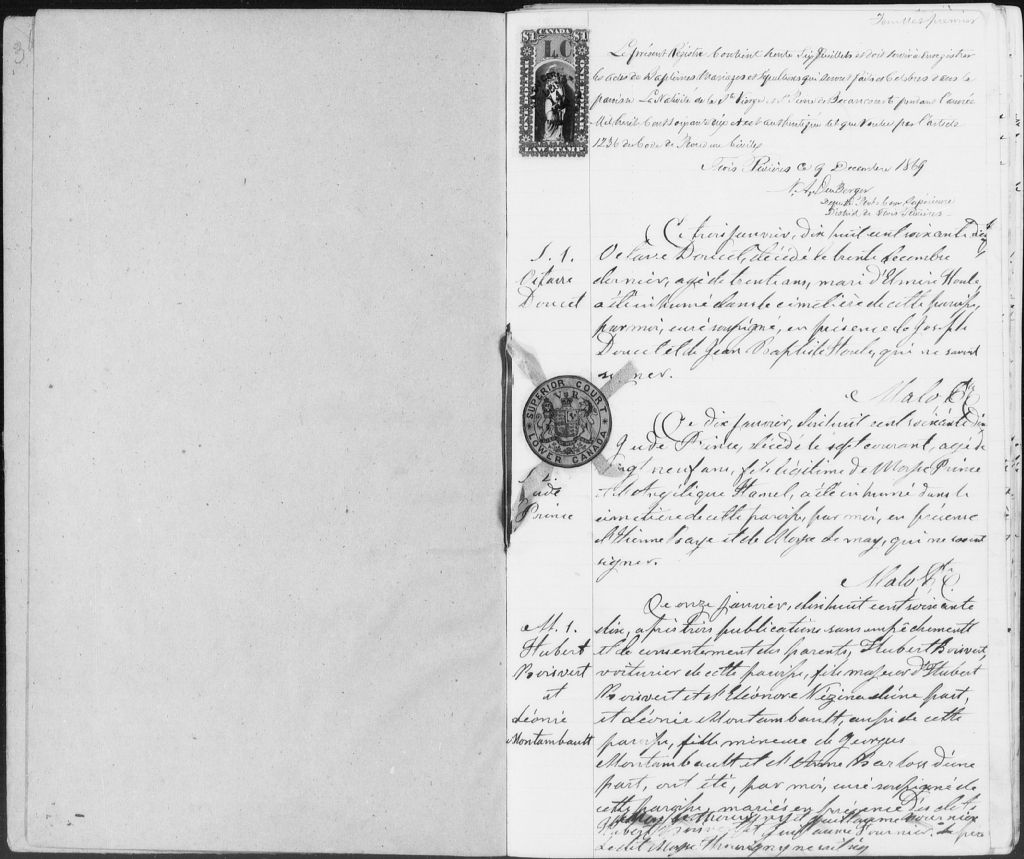 3
Feuillet premier
$1 CANADA $1
LC
LAW STAMP
Le présent Registre contient trente six feuillets et doit servir à enregistrer
les actes de Baptêmes Mariages et Sépultures qui seront faits et célébrés dans la
paroisse La Nativité de la Ste Vierge et St Pierre de Bécancourt pendant l'année
Mil huit cent soixante dix et est authentiqué tel que voulu par l'article
1236 du Code de Procédure Civile
Trois Rivières ce 9 Décembre 1869
Député Prot. Cour Supérieure
District de Trois Rivières
S. 1.
Octave
Doucet
Ce trois janvier, dix huit cent soixante dix
Octave Doucet, décédé le trente décembre
dernier, agé de trente ans, mari d'Elmire Houle,
a été inhumé dans le cimetière de cette paroisse,
par moi, curé soussigné, en présence de Joseph
Doucet et de Jean Baptiste Houle, qui ne savent
signer.
Malo Ptre
SUPERIOR COURT
VR
LOWER CANADA
S. 2.
Jude
Prince
Ce dix janvier, dix huit cent soixante dix
Jude Prince, décédé le sept courant, agé de
vingt neuf ans, fils légitime de Moyse Prince
et d'Angélique Hamel, a été inhumé dans le
cimetière de cette paroisse, par moi, en présence
d'Etienne et de Moyse, qui ne savent
signer.
Malo Ptre
M. 1.
Hubert
Boisvert
et
Léonie
Montambault
Ce onze janvier, dix huit cent soixante
dix, après trois publications sans empêchements
et de consentement des parents, Hubert Boisvert
voiturier de cette paroisse, fils majeur d'Hubert
Boisvert et d'Eléonore Vézina d'une part,
et Léonie Montambault, aussi de cette
paroisse, fille mineure de Georges
Montambault et d'Anne d'une
part, ont été, par moi, curé soussigné de
cette paroisse, mariés en présence